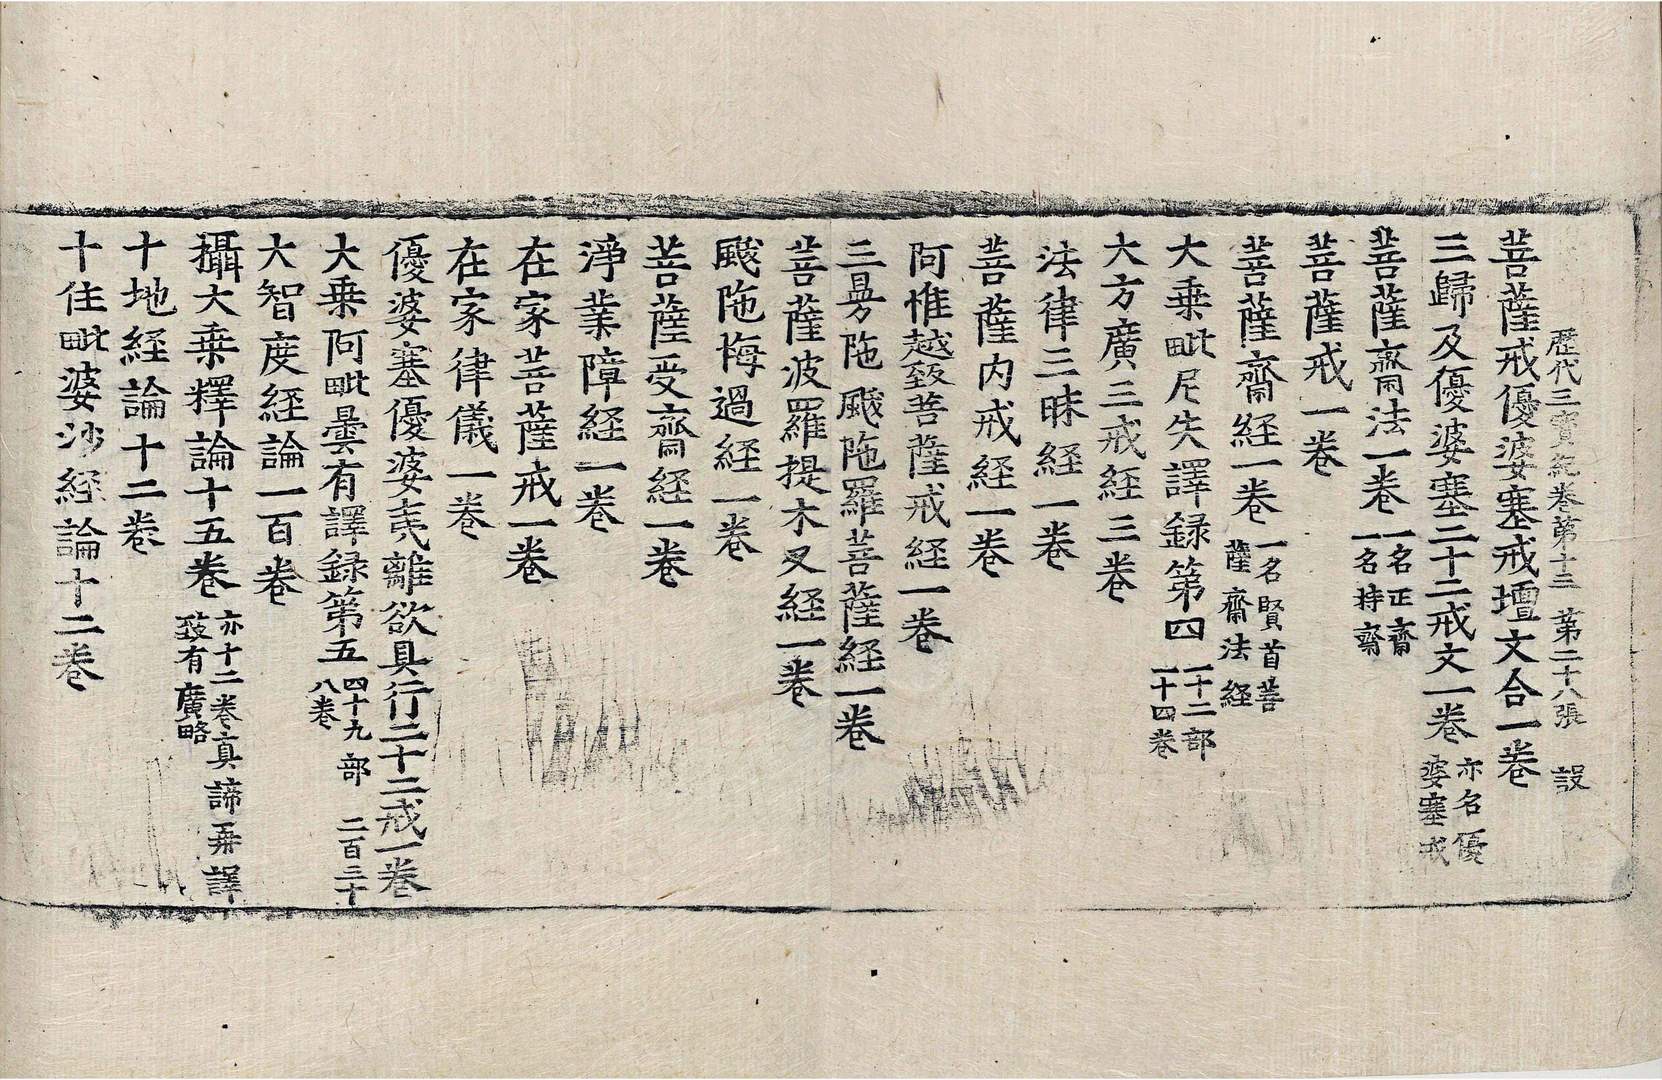 歷代三寶紀卷第十三 第二十八張 設
菩薩戒優婆塞戒壇文合一卷
三歸及優婆塞二十二戒文一卷 亦名優
婆塞戒
菩薩齋法一卷 一名正齋
一名持齋
菩薩戒一卷
菩薩齋経一卷 一名賢首菩
薩齋法経
大乗毗尼失譯録第四 一十二部
一十四卷
大方廣三戒経三卷
法律三昧経一卷
菩薩内戒経一卷
阿惟越致菩薩戒経一卷
三曼陁颰陁羅菩薩経一卷
菩薩波羅提木叉経一卷
颰陁悔過経一卷
菩薩受齋経一卷
淨業障経一卷
在家菩薩戒一卷
在家律儀一卷
優婆塞優婆夷離欲具行二十二戒一卷
大乗阿毗曇有譯録第五 四十九部 二百三十
八卷
大智度経論一百卷
攝大乗釋論十五卷 亦十二卷真諦再譯
致有廣略
十地経論十二卷
十住毗婆沙経論十二卷